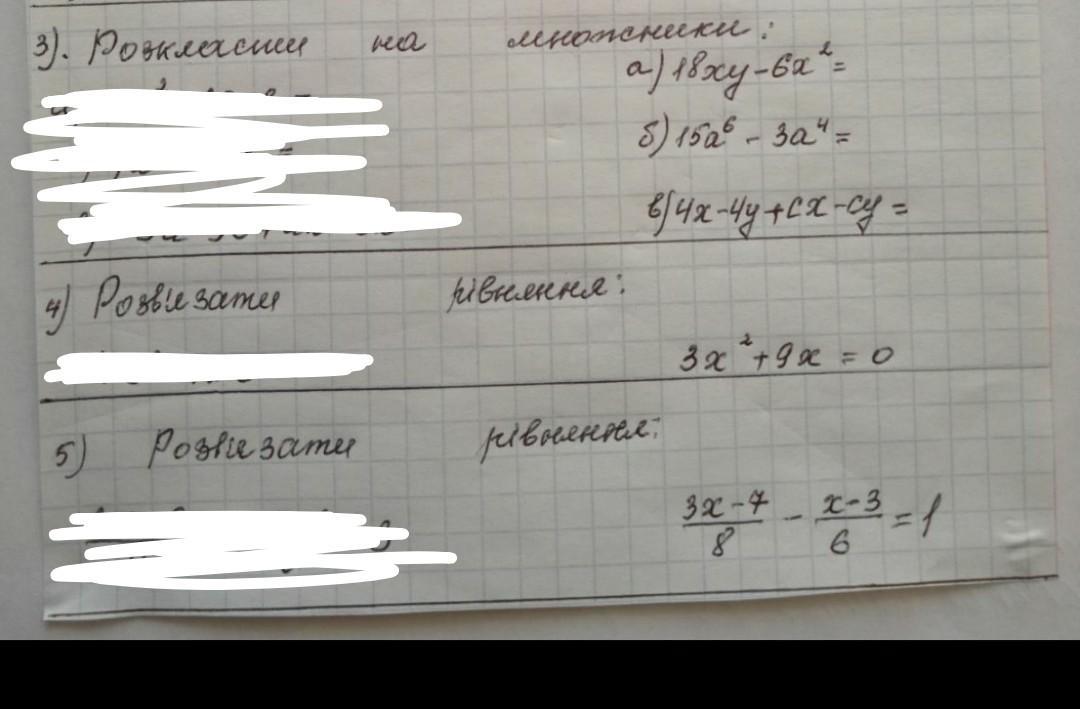 3). Розкласти на множники:
а) 18xy-6x²=
б) 15a⁶ - 3a⁴=
в) 4x-4y+cx-cy=
4) Розв'язати рівняння:
3x²+9x = 0
5) Розв'язати рівняння:
(3x-7)/8 - (x-3)/6 = 1